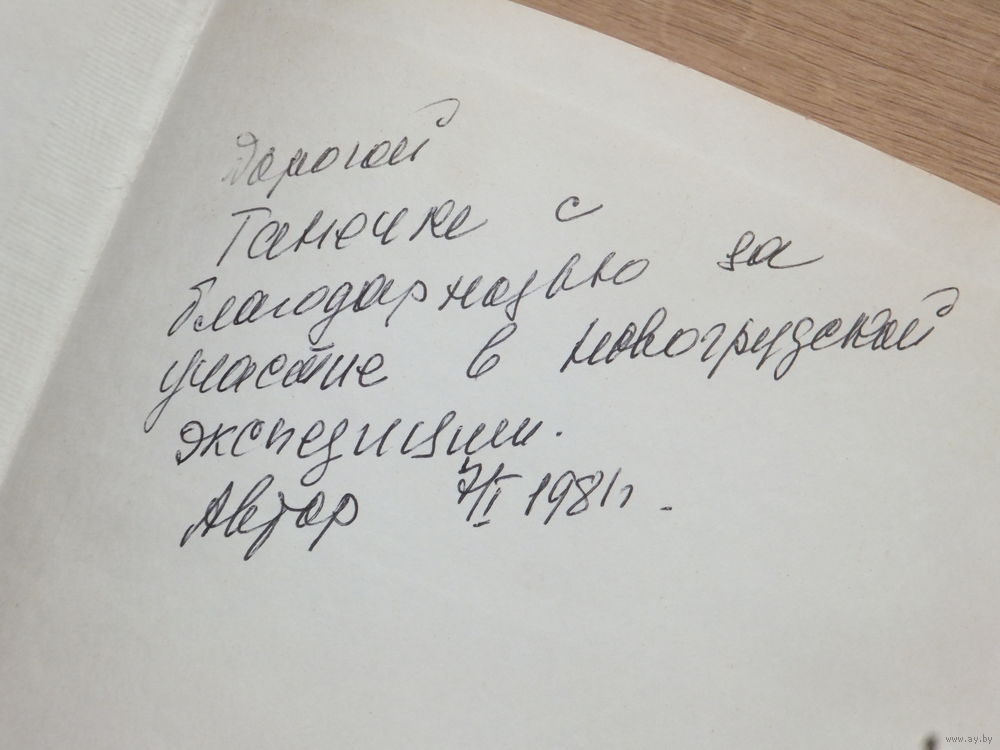 Дорогой
Танечке с
благодарностью за
участие в новогрудской
экспедиции.
Автор 7/I 1981г.
www.ay.by